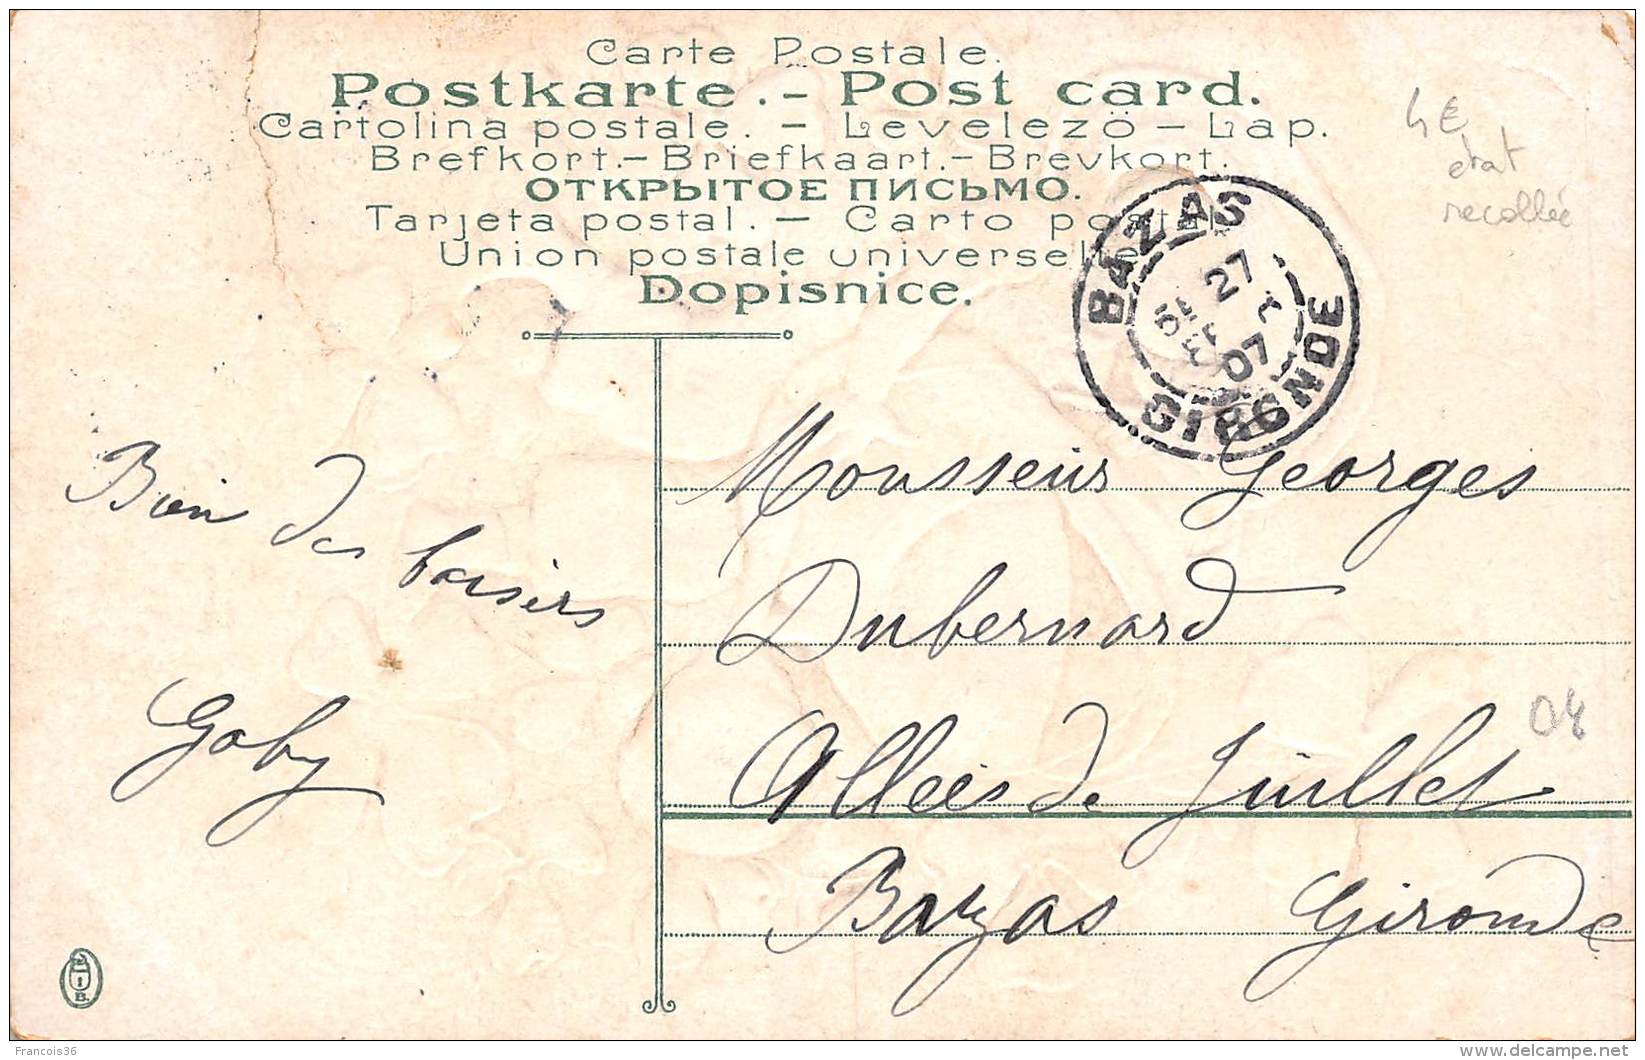 Carte Postale.
Postkarte.- Post card.
Cartolina postale. - Levelezö - Lap.
Brefkort.- Briefkaart.- Brevkort.
ОТКРЫТОЕ ПИСЬМО.
Tarjeta postal. - Carto postal
Union postale universelle
Dopisnice.
4€
état
recollée
BAZAS
27
07
GIRONDE
Bien des baisers
Gaby
Monsieur Georges
Dubernard
04
Allées de Juillet
Bazas Gironde
B.
Francois36
www.delcampe.net